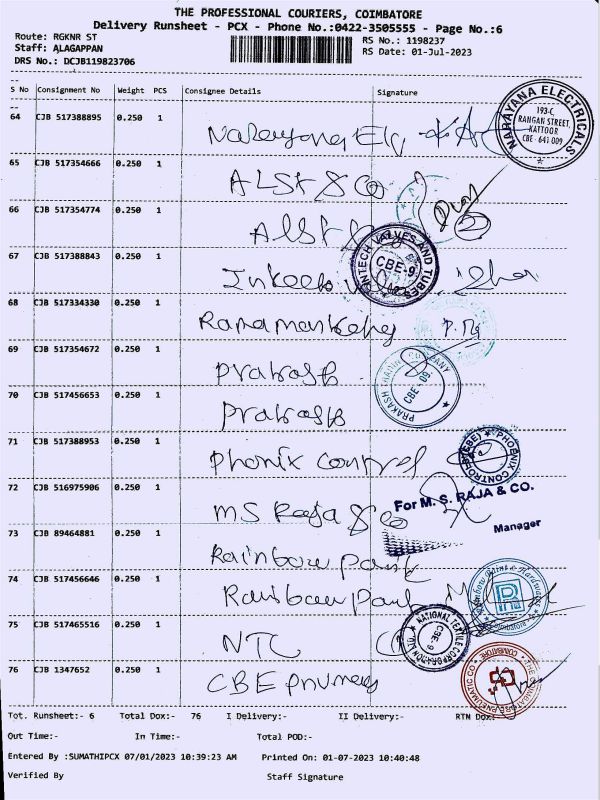 THE PROFESSIONAL COURIERS, COIMBATORE
Delivery Runsheet - PCX - Phone No.:0422-3505555 - Page No.:6
Route: RGKNR ST
RS No.: 1198237
Staff: ALAGAPPAN
RS Date: 01-Jul-2023
DRS No.: DCJB119823706
S No Consignment No Weight PCS Consignee Details Signature
64 CJB 517388895 0.250 1 Narayana
NARAYANA ELECTRICALS
193-C,
RANGAN STREET,
KATTOOR
CBE - 641 009
65 CJB 517354666 0.250 1 ALSF & Co
66 CJB 517354774 0.250 1 ALSF
67 CJB 517388843 0.250 1
VALVES AND TUBES
CBE-9
68 CJB 517334330 0.250 1
69 CJB 517354672 0.250 1 Prakash
PRAKASH TRADING COMPANY
CBE - 09.
70 CJB 517456653 0.250 1 Prakash
71 CJB 517388953 0.250 1 Phonix Control
PHOENIX CONTROLS (CBE)
72 CJB 516975906 0.250 1 MS Raja & Co
For M. S. RAJA & CO.
Manager
73 CJB 89464881 0.250 1 Rainbow Paint
74 CJB 517456646 0.250 1 Rainbow Paint
Rainbow Paints & Hardwares
75 CJB 517465516 0.250 1 NTC
NATIONAL TEXTILE CORPORATION LTD.
CBE-9
76 CJB 1347652 0.250 1 CBE
Tot. Runsheet:- 6 Total Dox:- 76 I Delivery:- II Delivery:- RTN Dox:-
Out Time:- In Time:- Total POD:-
Entered By :SUMATHIPCX 07/01/2023 10:39:23 AM Printed On: 01-07-2023 10:40:48
Verified By Staff Signature